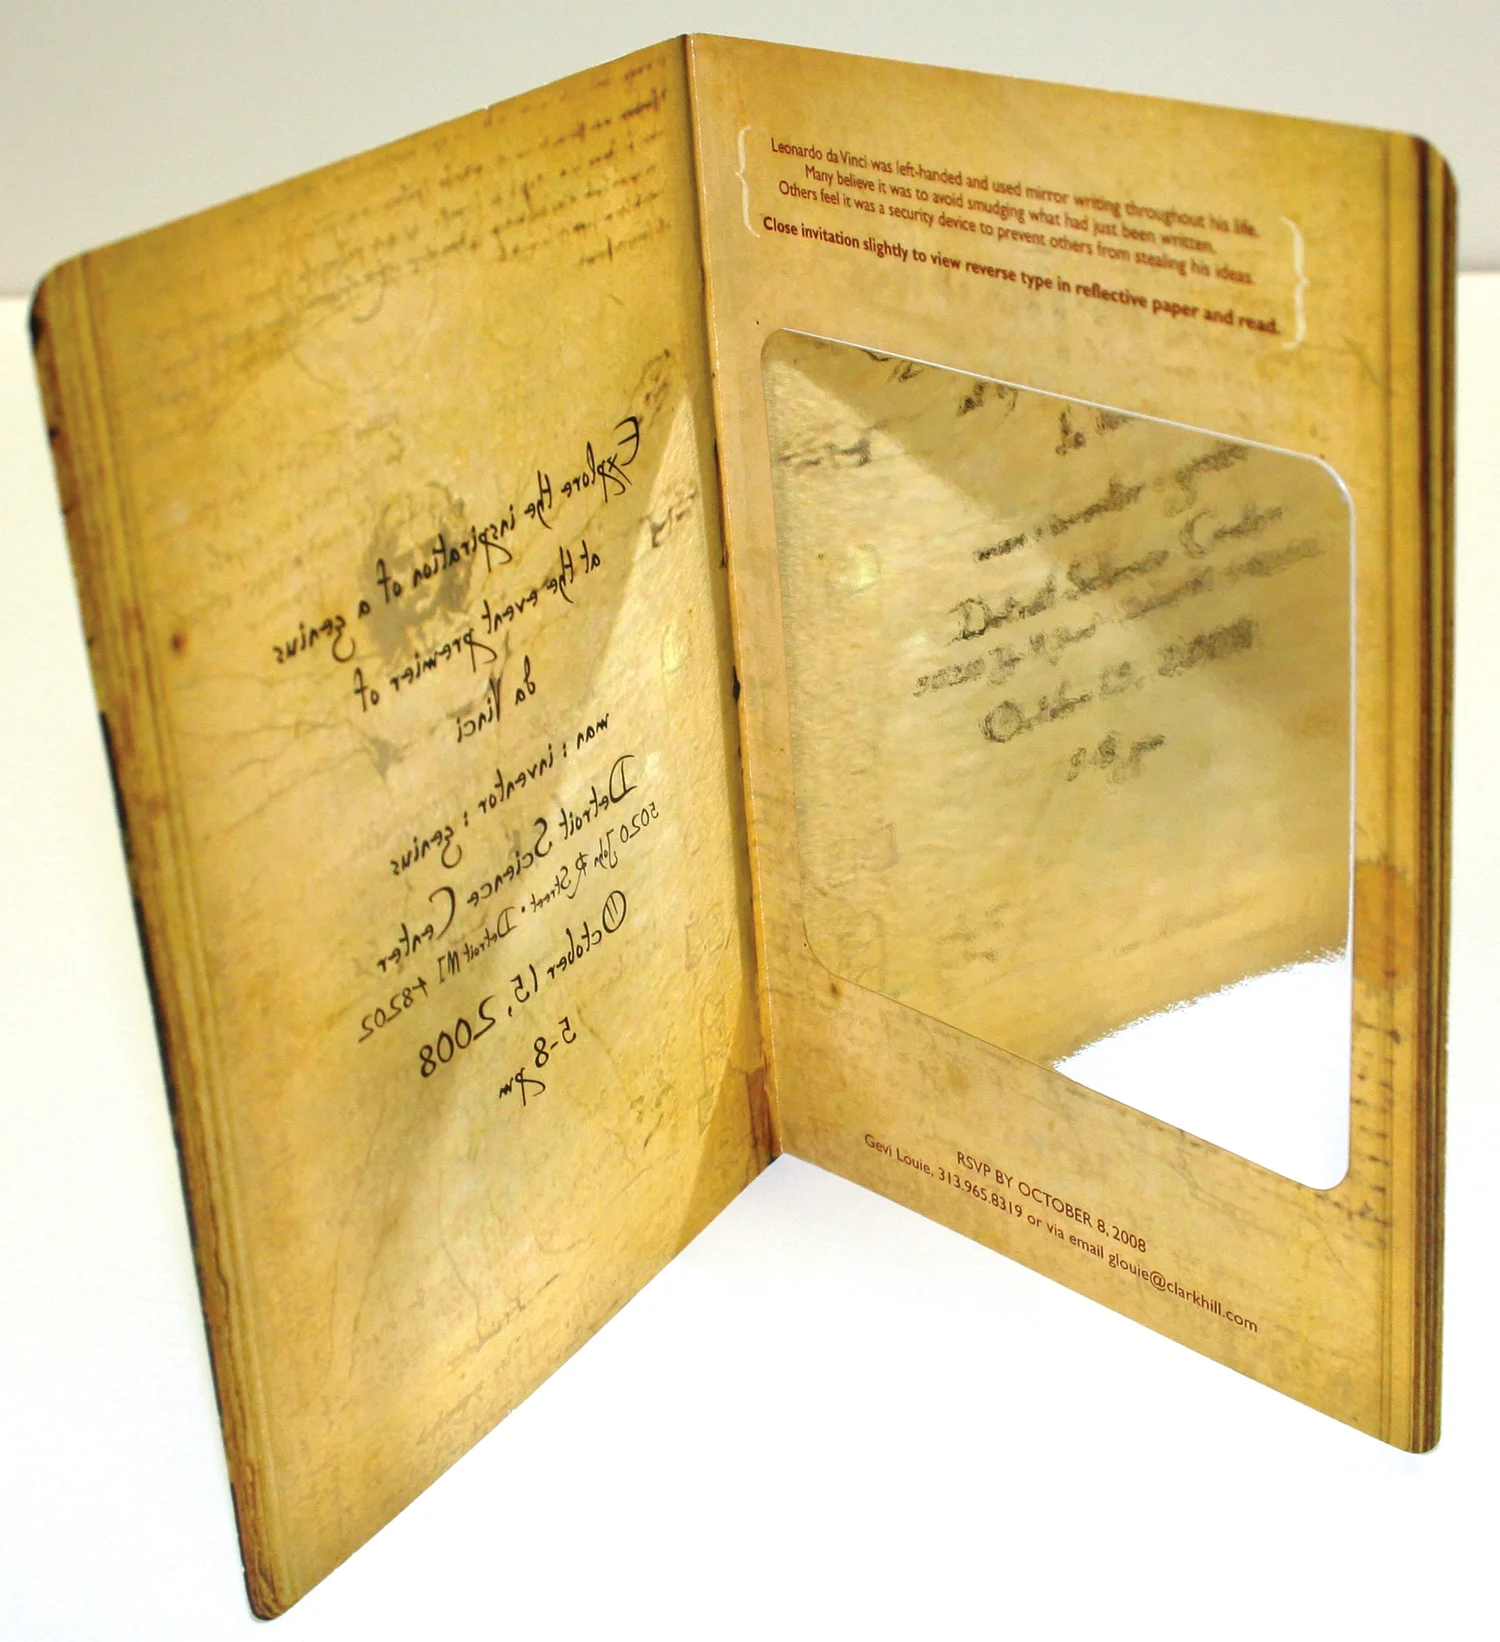 Explore the inspiration of a genius
at the event premier of
da Vinci
man : inventor : genius
Detroit Science Center
5020 John R Street • Detroit MI 48202
October 15, 2008
5-8 pm
Leonardo da Vinci was left-handed and used mirror writing throughout his life.
Many believe it was to avoid smudging what had just been written.
Others feel it was a security device to prevent others from stealing his ideas.
Close invitation slightly to view reverse type in reflective paper and read.
Detroit Science Center
October 15, 2008
RSVP BY OCTOBER 8, 2008
Gevi Louie, 313.965.8319 or via email glouie@clarkhill.com